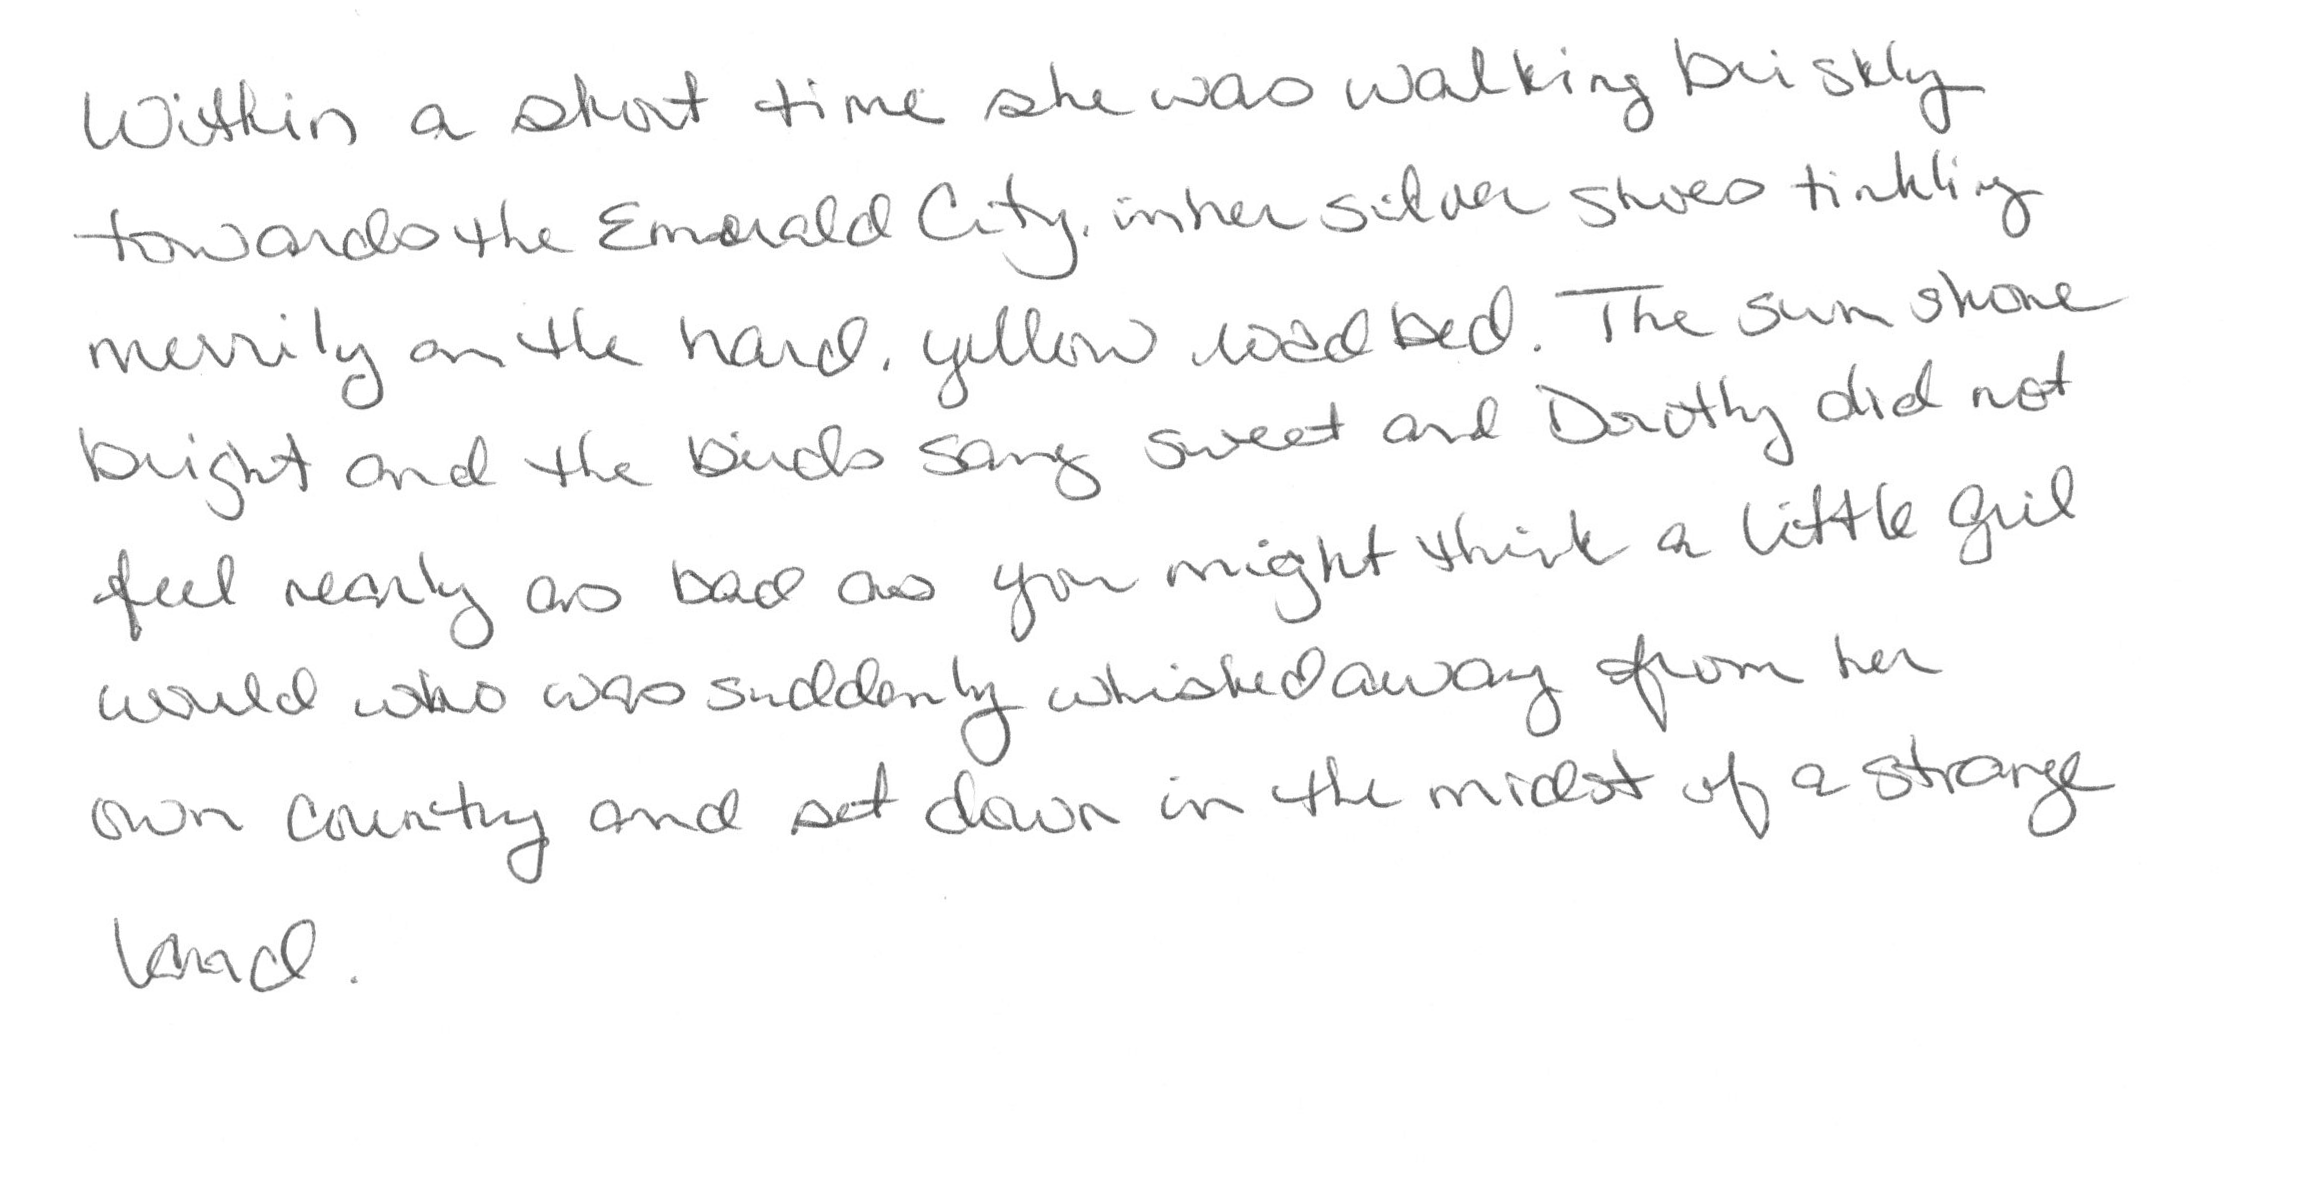 Within a short time she was walking briskly
towards the Emerald City, in her silver shoes tinkling
merrily on the hard, yellow road bed. The sun shone
bright and the birds sang sweet and Dorothy did not
feel nearly as bad as you might think a little girl
would who was suddenly whisked away from her
own country and set down in the midst of a strange
land.